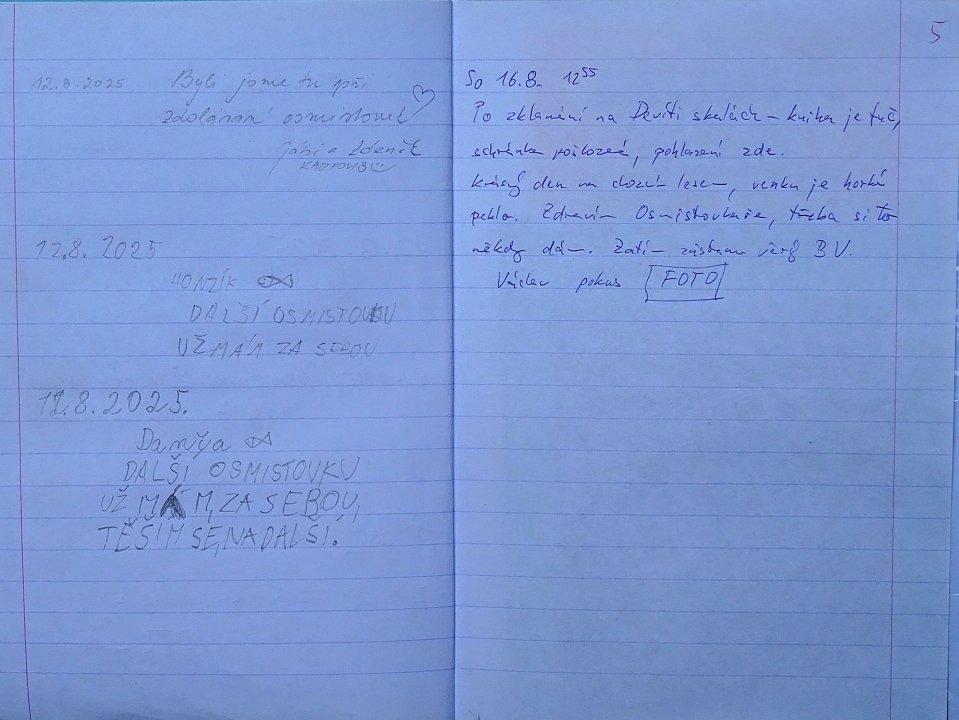 12.8.2025 Byli jsme tu při
zdolávání osmistovek
a Zdeněk
12.8.2025
HONZÍK
DALŠÍ OSMISTOVKU
UŽ MÁM ZA SEBOU
12.8.2025.
Daněya
DALŠÍ OSMISTOVKU
UŽ MÁM, ZA SEBOU,
TĚŠÍM SE, NA DALŠÍ.
5
So 16.8. 12⁵⁵
Po zklamání na Devíti skalách – kniha je fuč,
schránka poškozená, pohlazení zde.
Krásný den na chození lesem, venku je horké
peklo. Zdravím Osmistovkaře, třeba si to
někdy dám. Zatím zůstávám věrný B V.
Václav pokus FOTO